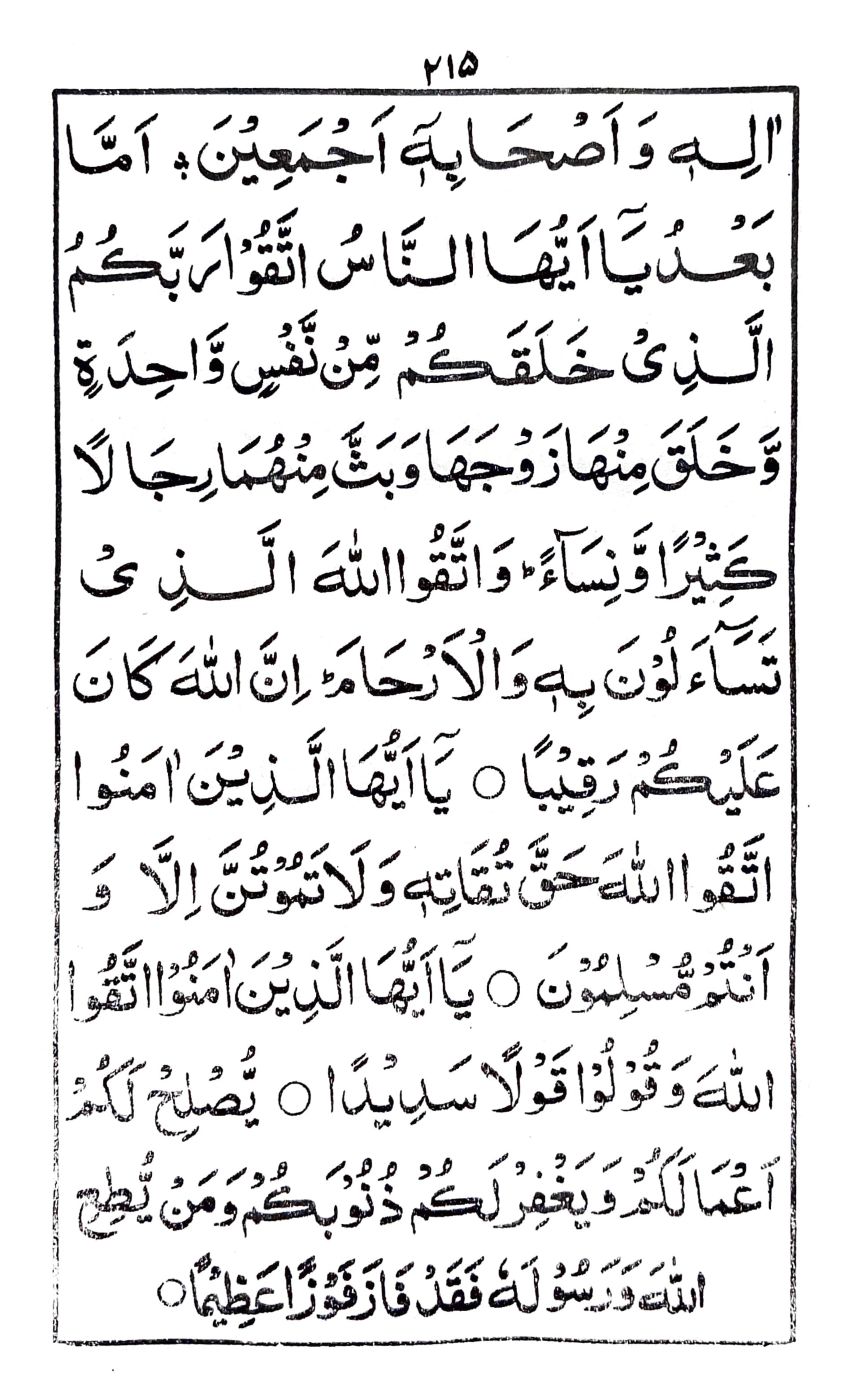 ۲۱۵
اٰلِهٖ وَ اَصْحَابِهٖٓ اَجْمَعِيْنَ ؞ اَمَّا
بَعْدُ يَآ اَيُّهَا النَّاسُ اتَّقُوْا رَبَّكُمُ
الَّذِیْ خَلَقَكُمْ مِّنْ نَّفْسٍ وَّاحِدَةٍ
وَّخَلَقَ مِنْهَا زَوْجَهَا وَبَثَّ مِنْهُمَا رِجَالًا
كَثِيْرًا وَّنِسَآءًؕ وَاتَّقُوا اللّٰهَ الَّذِیْ
تَسَآءَلُوْنَ بِهٖ وَالْاَرْحَامَؕ اِنَّ اللّٰهَ كَانَ
عَلَيْكُمْ رَقِيْبًا ○ يَآ اَيُّهَا الَّذِيْنَ اٰمَنُوا
اتَّقُوا اللّٰهَ حَقَّ تُقَاتِهٖ وَلَا تَمُوْتُنَّ اِلَّا وَ
اَنْتُمْ مُّسْلِمُوْنَ ○ يَآ اَيُّهَا الَّذِيْنَ اٰمَنُوْا اتَّقُوا
اللّٰهَ وَقُوْلُوْا قَوْلًا سَدِيْدًا ○ يُّصْلِحْ لَكُمْ
اَعْمَالَكُمْ وَيَغْفِرْ لَكُمْ ذُنُوْبَكُمْ وَمَنْ يُّطِعِ
اللّٰهَ وَرَسُوْلَهٗ فَقَدْ فَازَ فَوْزًا عَظِيْمًا ○